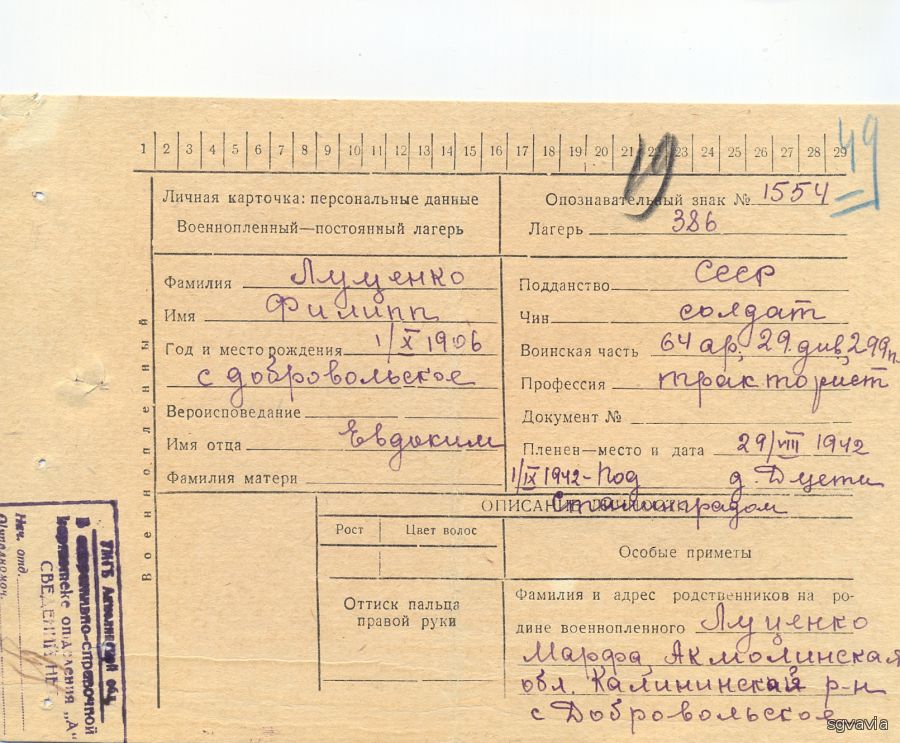 49
1 2 3 4 5 6 7 8 9 10 11 12 13 14 15 16 17 18 19 20 21 22 23 24 25 26 27 28 29
19
Личная карточка: персональные данные
Военнопленный—постоянный лагерь
Опознавательный знак № 1554
Лагерь 386
Военнопленный
Фамилия Луценко
Имя Филипп
Год и место рождения 1/X 1906
с добровольское
Вероисповедание
Имя отца Евдоким
Фамилия матери
Подданство СССР
Чин солдат
Воинская часть 64 ар, 29 див, 299 п.
Профессия тракторист
Документ №
Пленен—место и дата 29/VIII 1942
1/IX 1942 - Под д. Дцети
Сталинградом
ОПИСАНИЕ
Рост Цвет волос
Особые приметы
Оттиск пальца
правой руки
Фамилия и адрес родственников на ро-
дине военнопленного Луценко
Марфа, Акмолинская
обл. Калининский р-н
с Добровольское
В справочной
картотеке отделения „А"
СВЕДЕНИЙ НЕТ
Нач. отд.
Оперуполномоч.
sgvavia